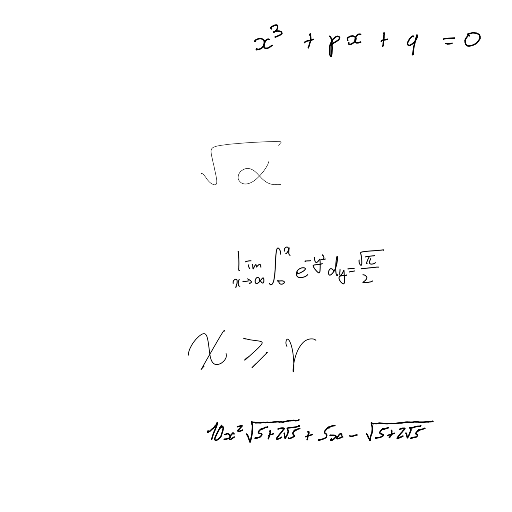 x³ + px + q = 0
√α
lim x→∞ ∫₀ᵃ e^{-y²} dy = √π/2
x ⩾ r
10x²√(5+2√5) + 5x − √(5+2√5)